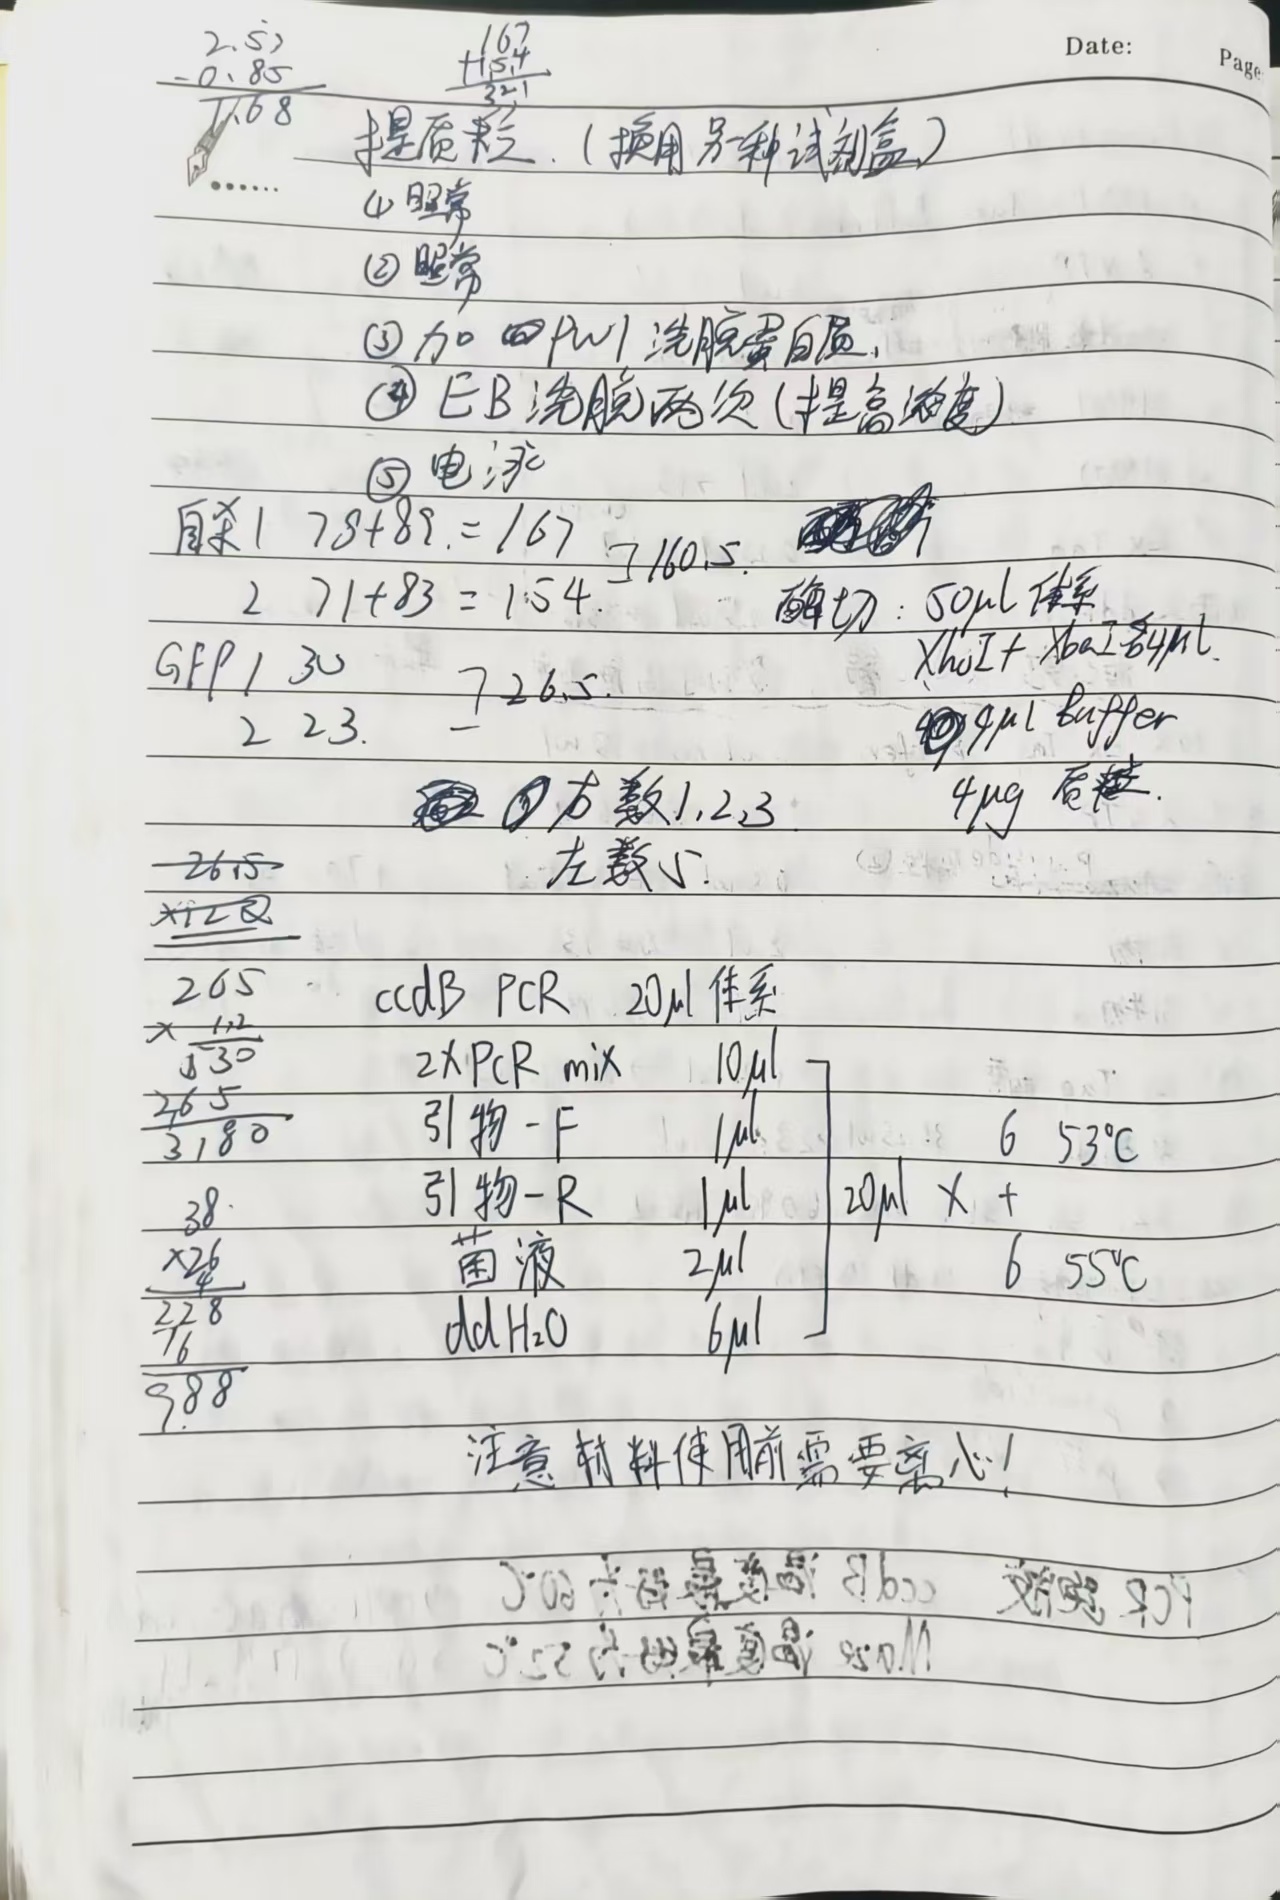 Date:
Page
2.53
-0.85
1.68
167
+154
321
提质粒.(换用另一种试剂盒)
① 照常
② 照常
③ 加 PW1 洗脱蛋白质.
④ EB 洗脱两次(提高浓度)
⑤ 电泳
自杀1 78+89.=167
2 71+83=154.
160.5.
酶切: 50μl 体系
XhoI+ XbaI各4μl.
4μl Buffer
4μg 质粒.
GFP 1 30
2 23.
26.5.
右数1,2,3
左数5.
26.5
265
× 1.2
530
265
3180
38.
×26
228
76
9.88
ccdB PCR 20μl 体系
2×PCR mix 10μl
引物-F 1μl
引物-R 1μl
菌液 2μl
ddH₂O 6μl
20μl × +
6 53℃
6 55℃
注意材料使用前需要离心!
PCR ccdB 温度最好为60℃
温度最好为52℃